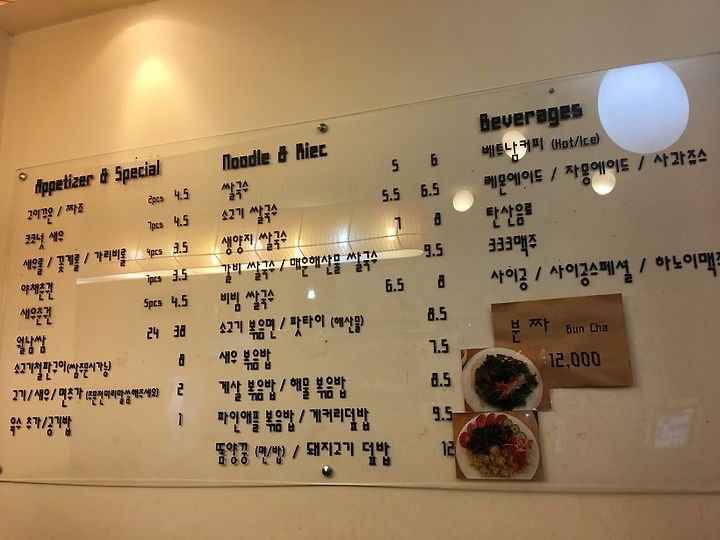 Appetizer & Special
고이꾸온 / 짜조 2pcs 4.5
코코넛 새우 1pcs 4.5
새우롤 / 꽃게롤 / 가리비롤 4pcs 3.5
야채춘권 1pcs 3.5
새우춘권 5pcs 4.5
월남쌈 24 38
소고기철판구이(쌈주문시가능) 8
고기/새우/면추가 (주문전미리말씀해주세요) 2
육수 추가/공기밥 1
Noodle & Riec
쌀국수 5 6
소고기 쌀국수 5.5 6.5
생양지 쌀국수 7 8
갈비 쌀국수 / 매운해산물 쌀국수 9.5
비빔 쌀국수 6.5 8
소고기 볶음면 / 팟타이 (해산물) 8.5
새우 볶음밥 7.5
게살 볶음밥 / 해물 볶음밥 8.5
파인애플 볶음밥 / 게커리덮밥 9.5
똠양꿍 (면/밥) / 돼지고기 덮밥 12
Beverages
베트남커피 (Hot/Ice)
레몬에이드 / 자몽에이드 / 사과쥬스
탄산음료
333맥주
사이공 / 사이공스페셜 / 하노이맥주
분 짜 Bun Cha
12,000